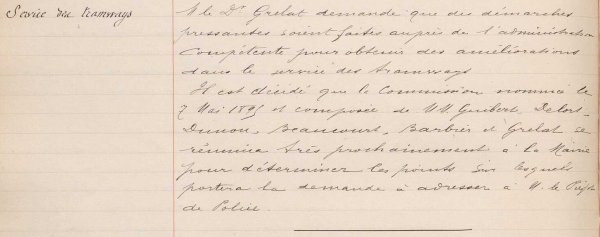 Service des tramways
M le Dr Grelat demande que des démarches
pressantes soient faites auprès de l'administration
Compétente pour obtenir des améliorations
dans le service des tramways
Il est décidé que la Commission nommée le
7 Mai 1895 et composée de MM. Guibert, Delort
Dunou, Beaucourt, Barbier et Grelat se
réunira très prochainement à la Mairie
pour déterminer les points sur lesquels
portera la demande à adresser à M. le Préfet
de Police.